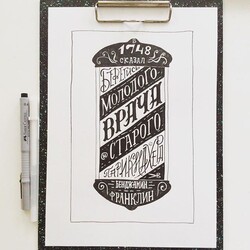 1748
СКАЗАЛ
БЕРЕГИСЬ
МОЛОДОГО
ВРАЧА
СТАРОГО
ПАРИКМАХЕРА
БЕНДЖАМИН
ФРАНКЛИН